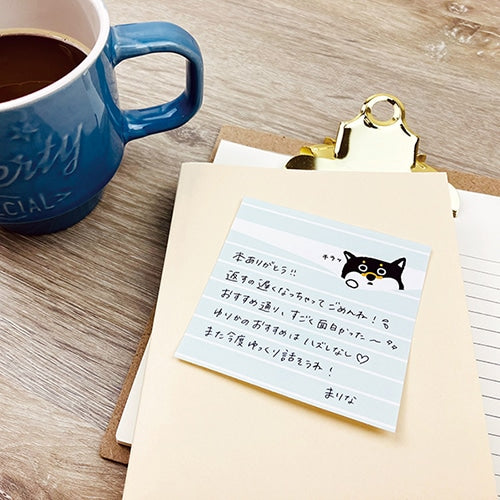 erty
ECIAL>
チラッ
本ありがとう!!
返すの遅くなっちゃってごめんね!
おすすめ通り、すごく面白かった〜
ゆりかのおすすめはハズレなし♡
また今度ゆっくり話そうね!
まりな